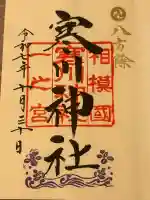 八方除
寒川神社
相模國
一之宮
令和七年十月三十日